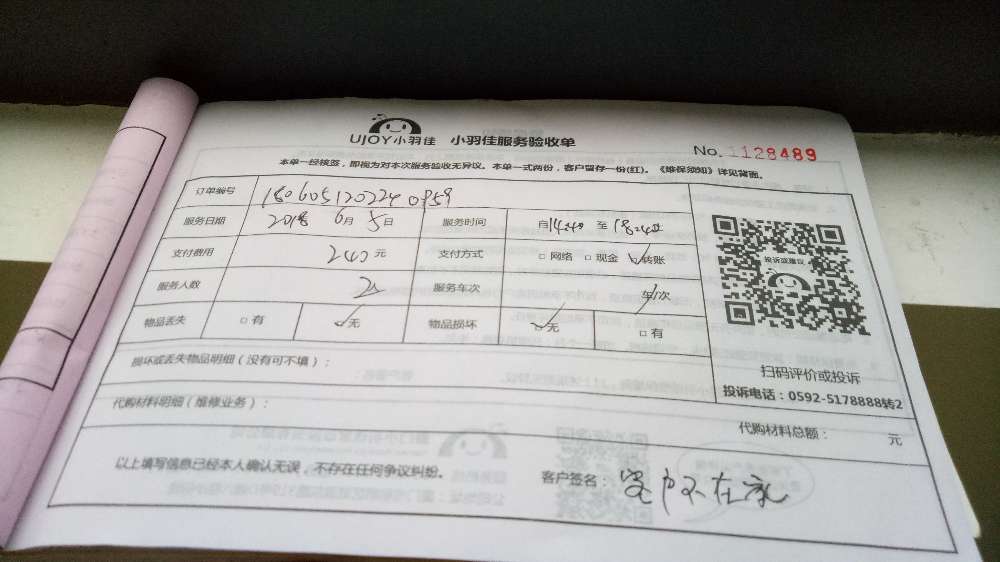 UJOY小羽佳 小羽佳服务验收单
No. 1128489
本单一经核签，即视为对本次服务验收无异议。本单一式两份，客户留存一份(红)。《维保须知》详见背面。
订单编号 180605120224 0959
服务日期 2018 年 6月 5日 服务时间 自14:40 至 18:24止
支付费用 240 元 支付方式 □ 网络 □ 现金 ☑ 转账
服务人数 2人 服务车次 车/次
物品丢失 □ 有 ☑ 无 物品损坏 ☑ 无 □ 有
投诉或建议
扫码评价或投诉
投诉电话：0592-5178888转2
损坏或丢失物品明细（没有可不填）：
代购材料明细（维修业务）：
代购材料总额： 元
以上填写信息已经本人确认无误，不存在任何争议纠纷。
客户签名： 客户不在家